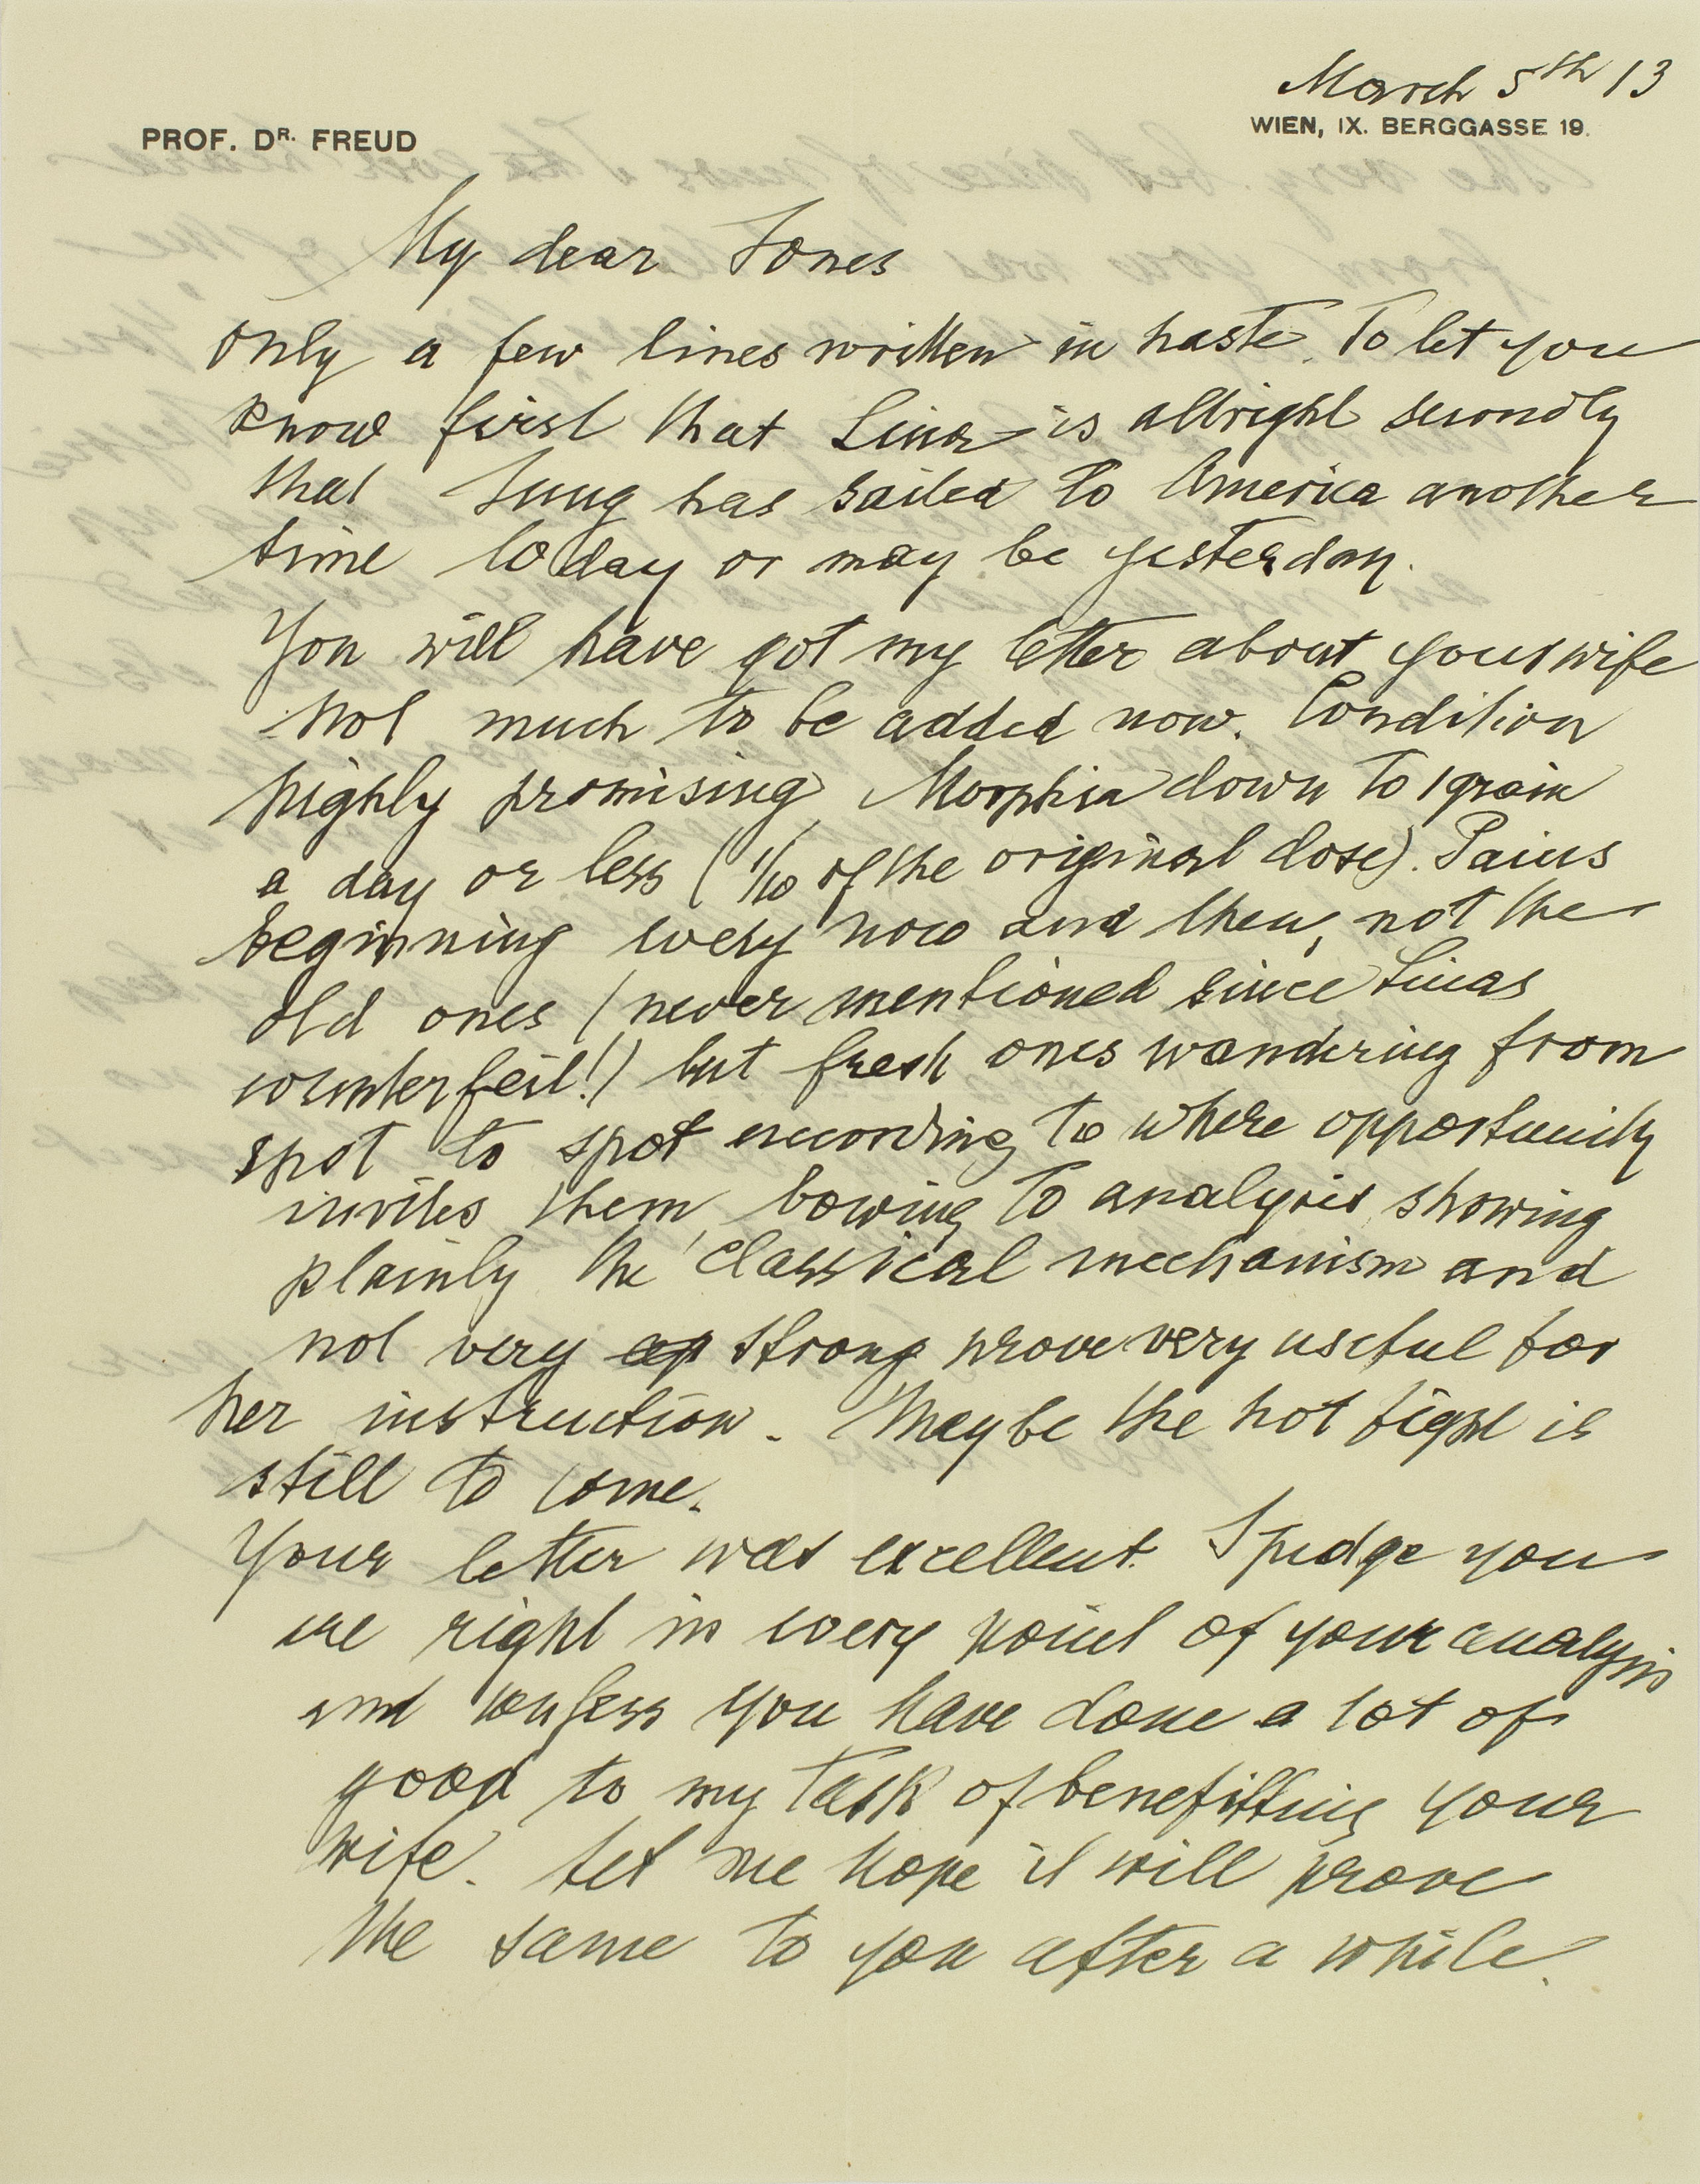 March 5th 13
PROF. DR. FREUD
WIEN, IX. BERGGASSE 19.
My dear Jones
Only a few lines written in haste. To let you
know first that Lina is allright secondly
that Jung has sailed to America another
time today or may be yesterday.
You will have got my letter about your wife
Not much to be added now. Condition
highly promising, Morphia down to 1 grain
a day or less (1/10 of the original dose). Pains
beginning every now and then, not the
old ones (never mentioned since Linas
counterfeit!) but fresh ones wandering from
spot to spot according to where opportunity
invites them, bowing to analysis, showing
plainly the classical mechanism and
not very strong prove very useful for
her instruction. Maybe the hot fight is
still to come.
Your letter was excellent. I judge you
are right in every point of your analysis
and confess you have done a lot of
good to my task of benefitting your
wife. Let me hope it will prove
the same to you after a while.